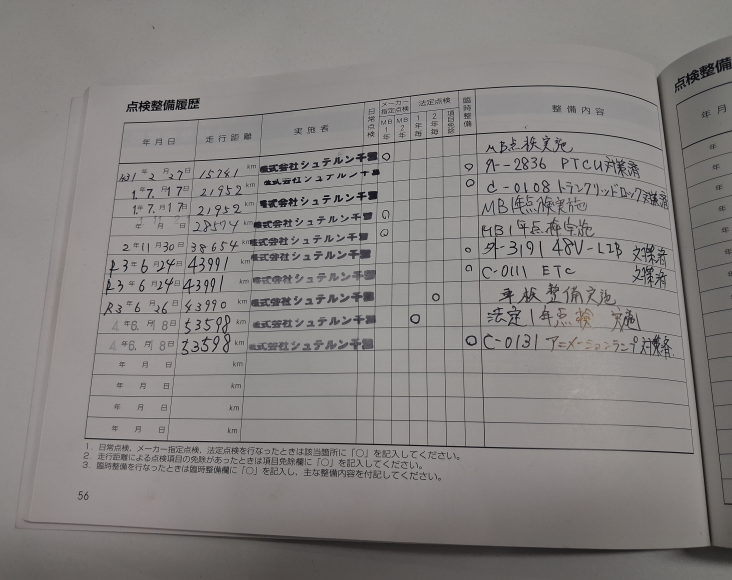 点検整備履歴
年月日 走行距離 実施者 日常点検 メーカー指定点検 MB1年 MB2年 法定点検 1年毎 2年毎 項目免除 臨時整備 整備内容
H31年2月27日 15741km 株式会社シュテルン千葉 ○ MB点検実施
1年7月17日 21952km 株式会社シュテルン千葉 ○ 2836 PTCU対策済
1年7月17日 21952km 株式会社シュテルン千葉 ○ C-0108 トランクリッドロック
28574km 株式会社シュテルン千葉 ○ MB1年点検実施
2年11月30日 38654km 株式会社シュテルン千葉 ○ MB1年点検実施
R3年6月24日 43991km 株式会社シュテルン千葉 ○ 3191 48V-LIB
R3年6月24日 43991km 株式会社シュテルン千葉 ○ C-0111 ETC
R3年6月26日 43990km 株式会社シュテルン千葉 ○ 車検整備実施
4年6月18日 53598km 株式会社シュテルン千葉 ○ 法定1年点検 実施
4年6月18日 53598km 株式会社シュテルン千葉 ○ C-0131 アニメーションランプ対策済
年月日 km
年月日 km
年月日 km
年月日 km
1. 日常点検、メーカー指定点検、法定点検を行なったときは該当箇所に「○」を記入してください。
2. 走行距離による点検項目の免除があったときは項目免除欄に「○」を記入してください。
3. 臨時整備を行なったときは臨時整備欄に「○」を記入し、主な整備内容を付記してください。
56
点検整備
年月
年
年
年
年
年